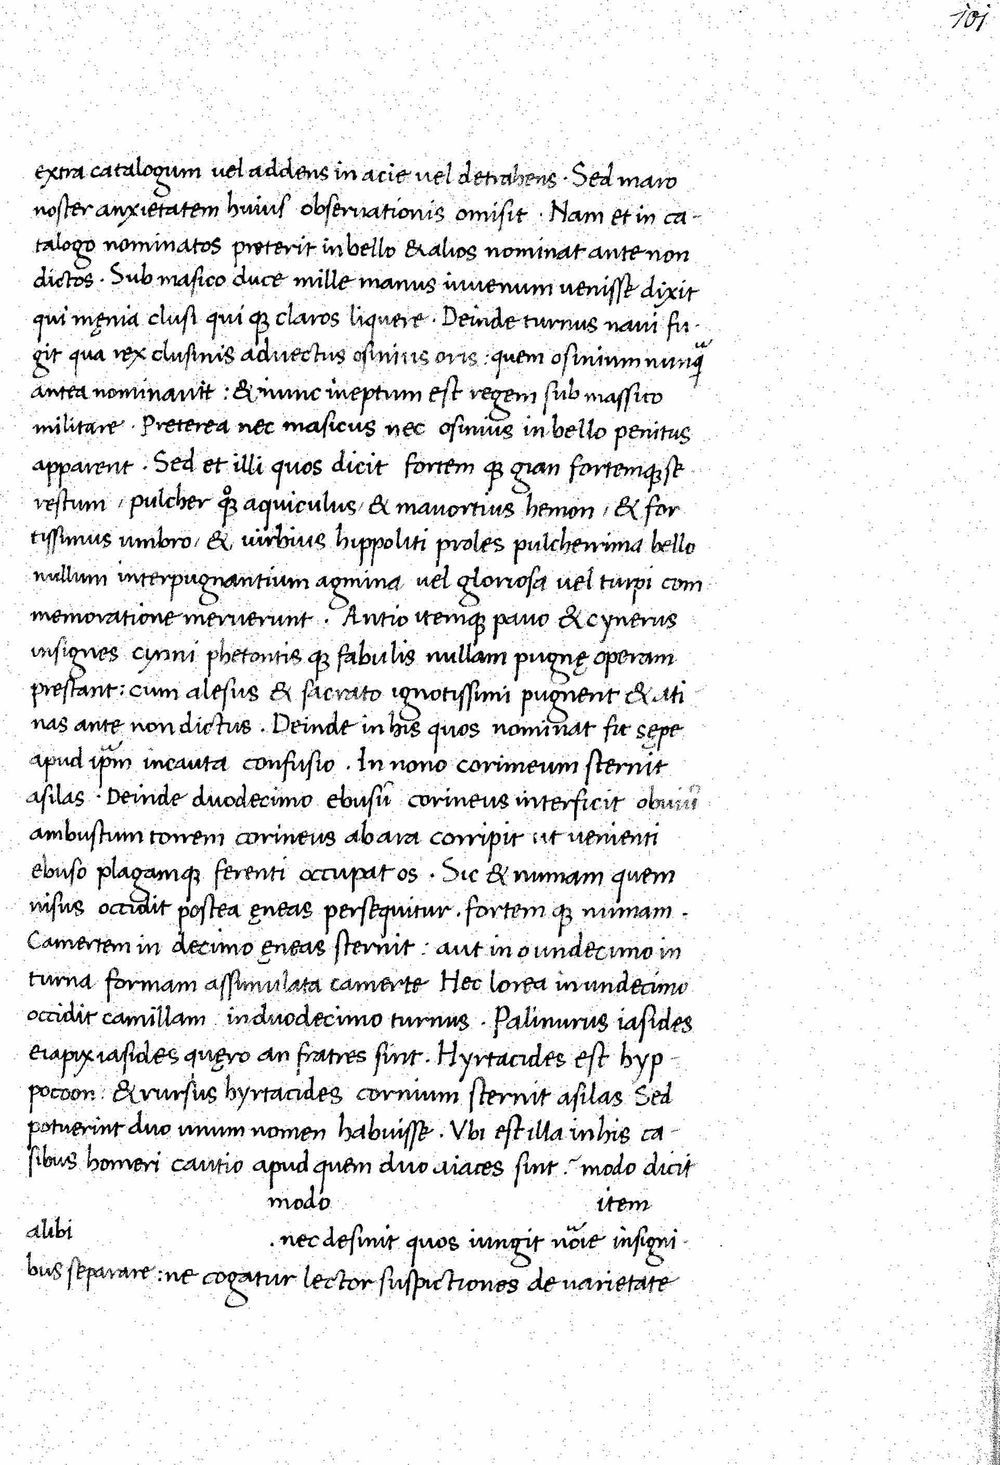 101
extra catalogum vel addens in acie vel detrahens · Sed maro
noster anxietatem huius observationis omisit · Nam et in ca-
talogo nominatos preterit in bello & alios nominat ante non
dictos · Sub masico duce mille manus iuvenum venisse dixit
qui męnia clusi qui qȝ claros liquere · Deinde turnus navi fu-
git qua rex clusinis advectus osinius oris : quem osinium nunq̃
antea nominavit : & nunc ineptum est regem sub massico
militare · Preterea nec masicus nec osinius in bello penitus
apparent · Sed et illi quos dicit fortem qȝ gian fortemqȝ se
restum / pulcher qȝ aquiculus / & mavortius hemon / & for
tissimus umbro / & virbius hippoliti proles pulcherrima bello
nullum interpugnantium agmina vel gloriosa vel turpi com
memoratione meruerunt · Antio itemqȝ pavo & cynerus
insignes cynni phetontis qȝ fabulis nullam pugnę operam
prestant : cum alesus & sacrato ignotissimi pugnent & ati
nas ante non dictus · Deinde in his quos nominat fit sępe
apud ip̃m incauta confusio · In nono corineum sternit
asilas · Deinde duodecimo ebusū corineus interficit obviū
ambustum torrem corineus ab ara corripit ut venienti
ebuso plagamqȝ ferenti occupat os · Sic & numam quem
nisus occidit postea ęneas persequitur · fortem qȝ numam ·
Camertem in decimo ęneas sternit : aut in o undecimo in
turna formam assimulata camerte Hec lorea in undecimo
occidit camillam in duodecimo turnus · Palinurus iasides
eiapix iasides quęro an fratres sint · Hyrtacides est hyp-
pocoon : & rursus hyrtacides cornium sternit asilas Sed
potuerint duo unum nomen habuisse · Vbi est illa in his ca-
sibus homeri cautio apud quem duo aiaces sint · modo dicit
modo item
alibi · nec desinit quos iungit nõie insigni-
bus separare : ne cogatur lector suspictiones de varietate